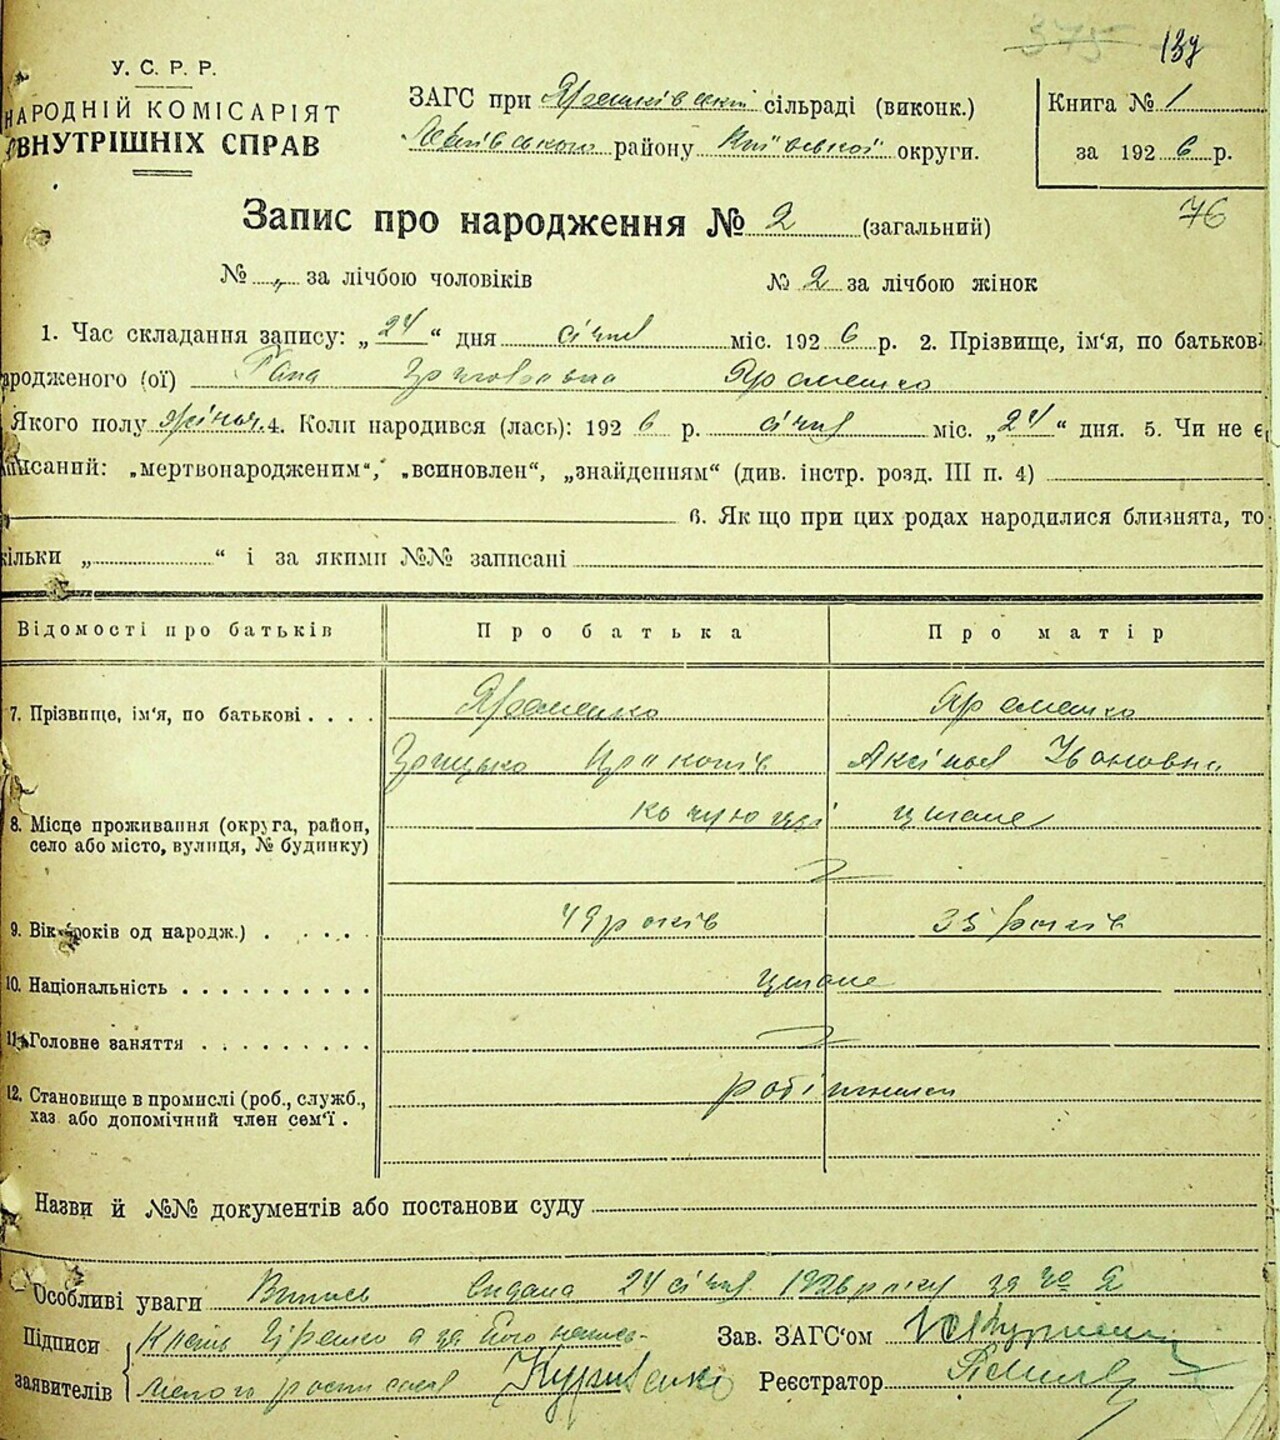 375 137
У. С. Р. Р.
НАРОДНІЙ КОМІСАРІЯТ
ВНУТРІШНІХ СПРАВ
ЗАГС при сільраді (виконк.)
району Київської округи.
Книга № 1
за 192 6 р.
76
Запис про народження № 2 (загальний)
№ „ за лічбою чоловіків № 2 за лічбою жінок
1. Час складання запису: „24“ дня січня міс. 192 6 р. 2. Прізвище, ім'я, по батькові
родженого (ої) Гана Яременко
Якого полу жіноч. 4. Коли народився (лась): 192 6 р. січня міс. „24“ дня. 5. Чи не є
писаний: „мертвонародженим“, „всиновлен“, „знайденням“ (див. інстр. розд. III п. 4)
6. Як що при цих родах народилися близнята, то
кільки „ “ і за якими №№ записані
Відомості про батьків Про батька Про матір
7. Прізвище, ім'я, по батькові . . . . Яременко Яременко
Грицько Прокопів Аксінья Івановна
8. Місце проживання (округа, район, село або місто, вулиця, № будинку) кочуючі цигане
9. Вік (років од народж.) . . . . . 49 років 35 років
10. Національність . . . . . . . . . . цигане
11. Головне заняття . . . . . . . . .
12. Становище в промислі (роб., служб., хаз. або допомічний член сем'ї .
Назви й №№ документів або постанови суду
Особливі уваги Випись видана 24 січня 1926 року за № 2
Підписи а за його непись-
заявителів меного росписався
Зав. ЗАГС'ом
Реєстратор